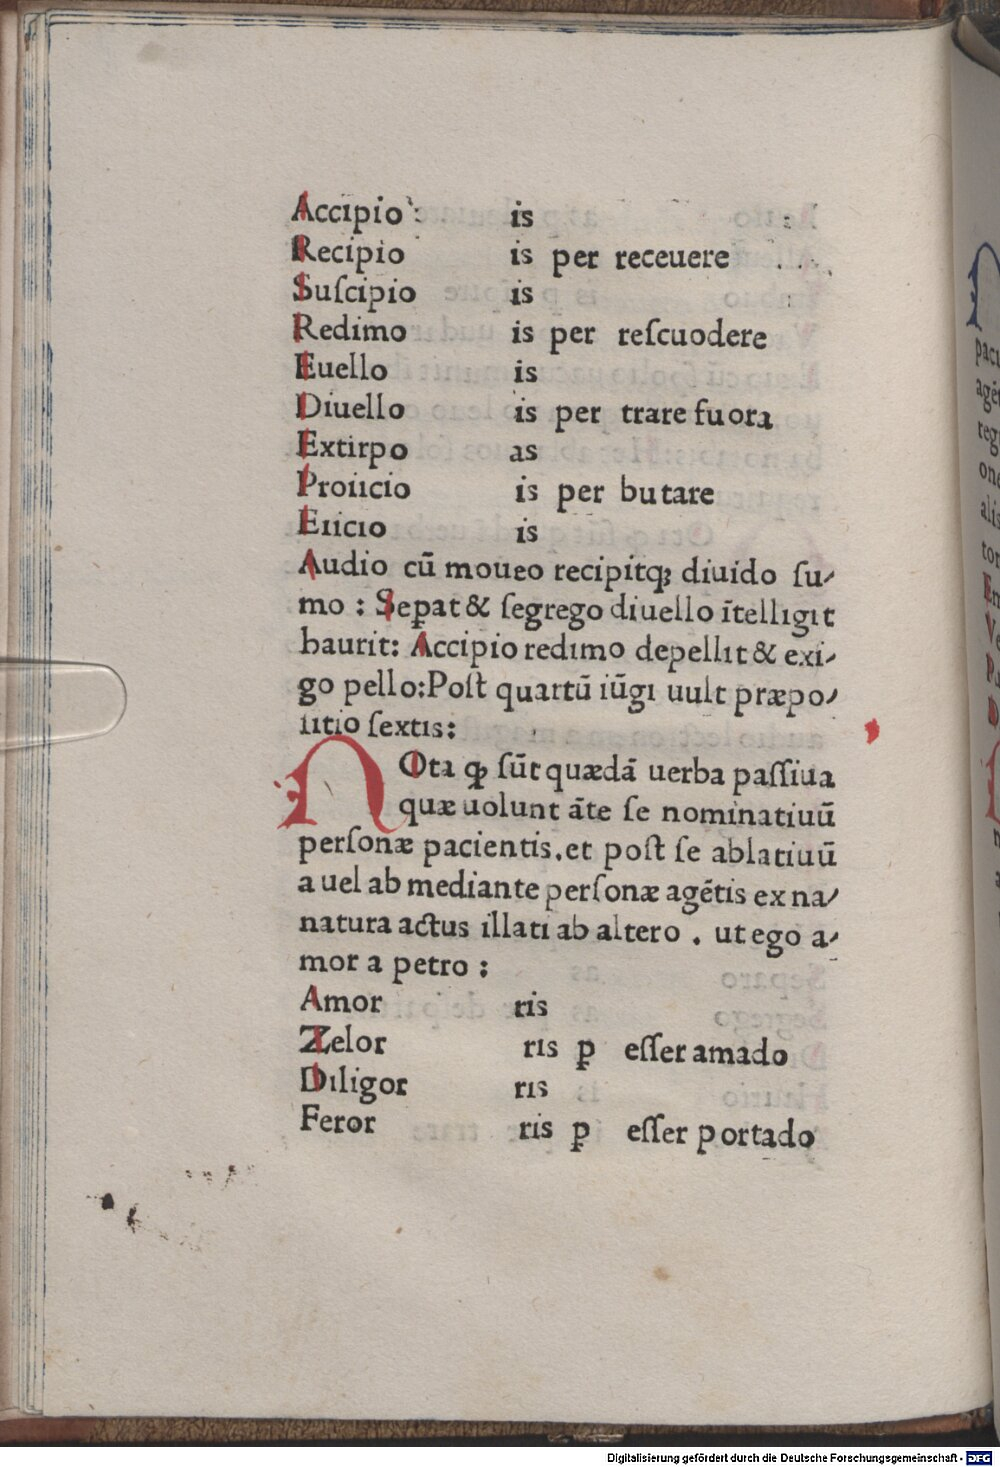 Accipio is
Recipio is per receuere
Suſcipio is
Redimo is per reſcuodere
Euello is
Diuello is per trare fuora
Extirpo as
Proiicio is per butare
Eiicio is
Audio cū moueo recipitqꝫ diuido ſu⸗
mo : Seꝑat & ſegrego diuello ītelligit
haurit: Accipio redimo depellit & exi⸗
go pello: Poſt quartū iūgi uult præpo⸗
ſitio ſextis:
NOta ꝙ ſūt quædā uerba paſſiua
quæ uolunt āte ſe nominatiuū
perſonæ pacientis. et poſt ſe ablatiuū
a uel ab mediante perſonæ agētis ex na⸗
natura actus illati ab altero . ut ego a⸗
mor a petro :
Amor ris
Zelor ris ꝑ eſſer amado
Diligor ris
Feror ris ꝑ eſſer portado
pacı
agē
reg
one
alis
tor
Em
Digitalisierung gefördert durch die Deutsche Forschungsgemeinschaft - DFG